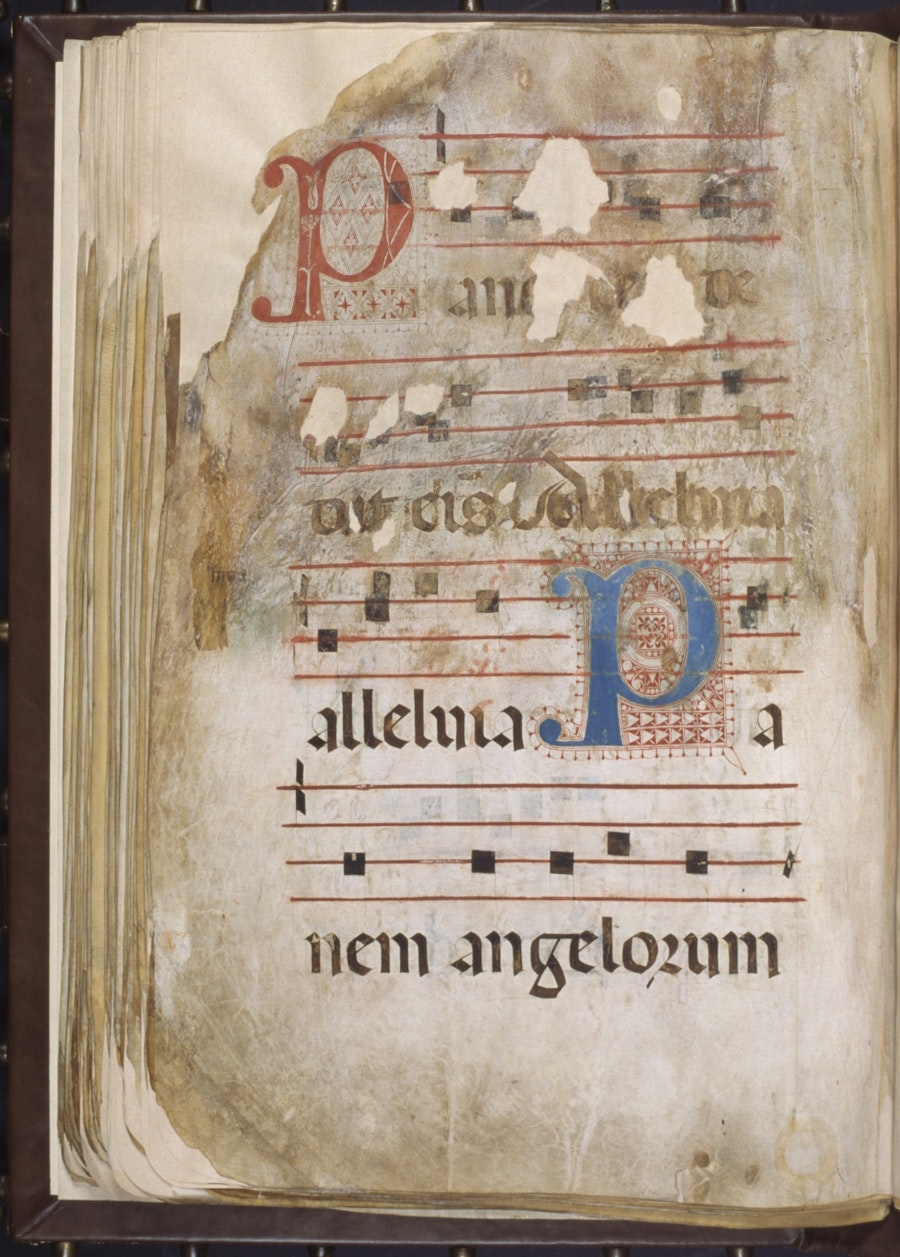 Pane de
dit eis alleluia
alleluia Pa
nem angelorum